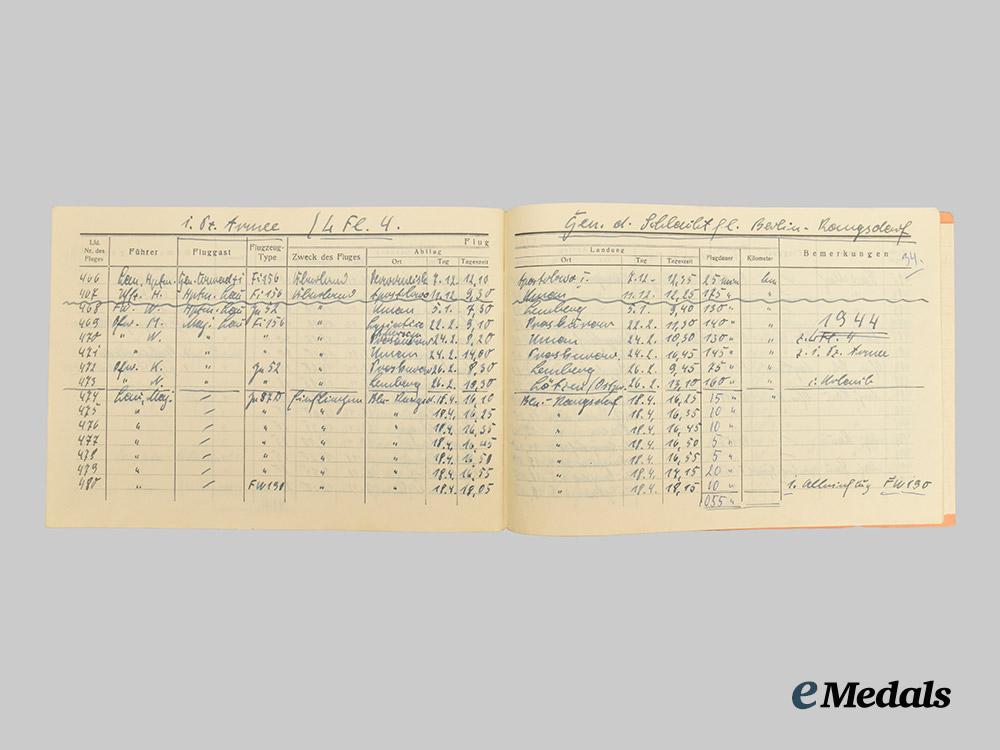 1. Pz. Armee / L Fl. 4. Gen. d. Schlachtfl. Berlin-Rangsdorf
Flug
Lfd. Nr. des Fluges Führer Fluggast Flugzeug-Type Zweck des Fluges Abflug Landung Flugdauer Kilometer Bemerkungen
Ort Tag Tageszeit Ort Tag Tageszeit
466 Fi 156 Überland 7.12. 12,10 Apostolowo 7.12. 12,35 25 min km
467 Uffz. H. Fi 156 Überland Apostolowo 11.12. 9,30 Uman 11.12. 12,25 175 " "
468 Fw. W. Ju 52 " Uman 5.1. 7,30 Lemberg 5.1. 9,40 130 " "
469 Ofw. M. Maj. Lau Fi 156 " 22.2. 9,10 22.2. 11,30 140 " " 1944
470 " W. " " " 24.2. 8,20 Uman 24.2. 10,30 130 " " z. L Fl. 4
471 " " " " Uman 24.2. 14,00 24.2. 16,45 145 " " z. 1. Pz. Armee
472 Ofw. K. Ju 52 " 26.2. 8,30 Lemberg 26.2. 9,45 75 " "
473 " N. " " " Lemberg 26.2. 10,30 Lötzen / Ostpr. 26.2. 13,10 160 " " i. Urlaub
474 Lau, Maj. Ju 87 D Einfliegen Bln.-Rangsd. 18.4. 16,10 Bln.-Rangsdorf 18.4. 16,25 15 " "
475 " " " " 18.4. 16,25 " 18.4. 16,35 10 "
476 " " " " 18.4. 16,35 " 18.4. 16,45 10 "
477 " " " " 18.4. 16,45 " 18.4. 16,50 5 "
478 " " " " 18.4. 16,50 " 18.4. 16,55 5 "
479 " " " " 18.4. 16,55 " 18.4. 17,15 20 "
480 " FW 190 " " 18.4. 18,05 " 18.4. 18,15 10 " 1. Alleinflug FW 190
1055 "
34.
eMedals